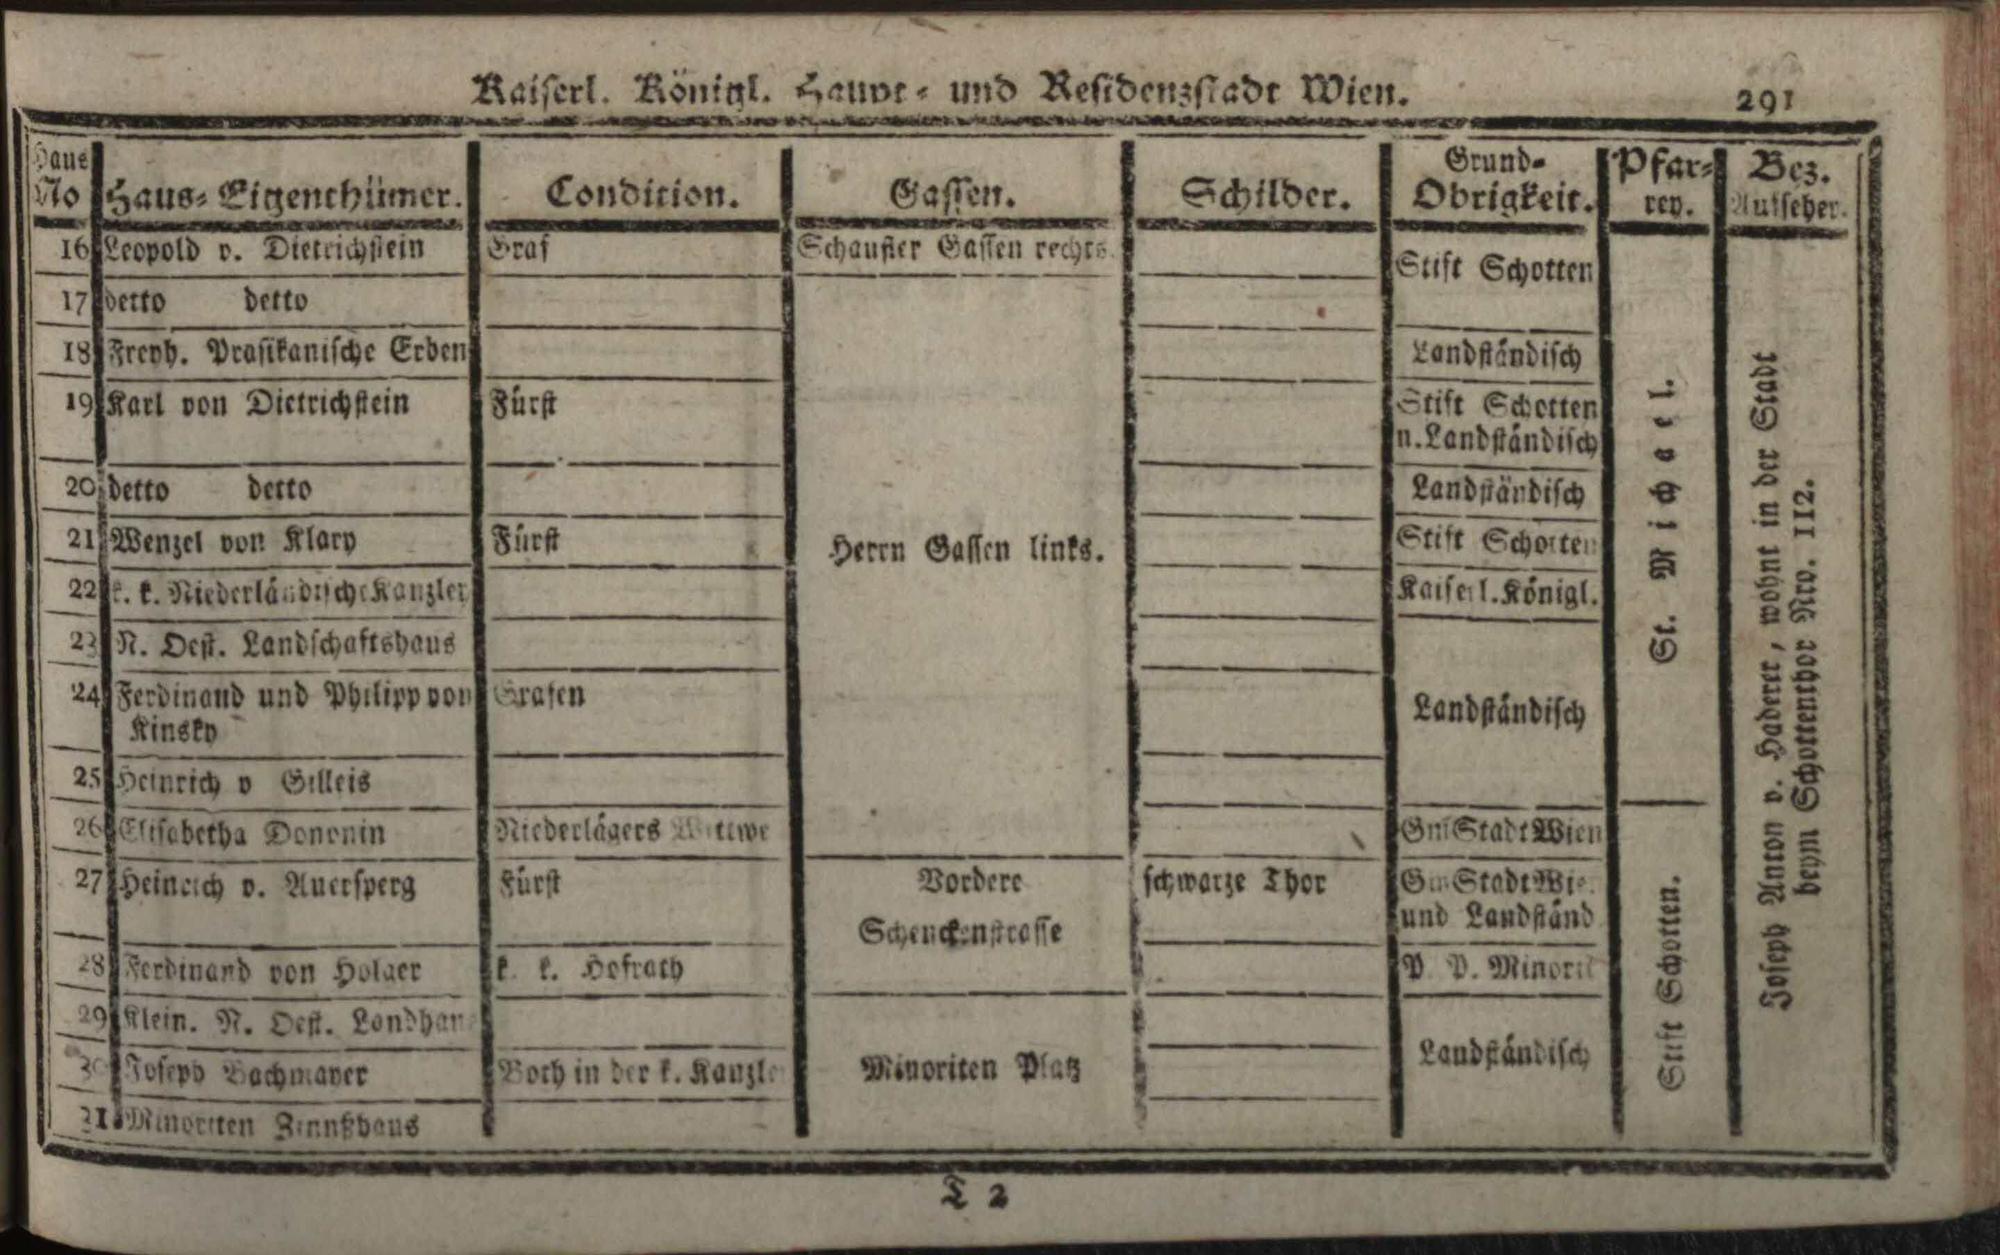 Kaiserl. Königl. Haupt- und Residenzstadt Wien. 291
Haus No | Haus-Eigenthümer. | Condition. | Gassen. | Schilder. | Grund-Obrigkeit. | Pfar-rey. | Bez. Aufseher.
16 Leopold v. Dietrichstein | Graf | Schaufler Gassen rechts. | Stift Schotten
17 detto detto
18 Freyh. Prasikanische Erben | Landständisch
19 Karl von Dietrichstein | Fürst | Stift Schotten
n. Landständisch
20 detto detto | Landständisch
21 Wenzel von Klary | Fürst | Herrn Gassen links. | Stift Schotten
22 k. k. Niederländische Kanzley | Kaiserl. Königl.
23 N. Oest. Landschaftshaus
24 Ferdinand und Philipp von | Grafen | Landständisch
Kinsky
25 Heinrich v Gilleis
26 Elisabetha Dononin | Niederlägers Wittwe | Gm Stadt Wien
27 Heinrich v. Auersperg | Fürst | Vordere | schwarze Thor | Gm Stadt Wie.
Schenckenstrasse | und Landständ
28 Ferdinand von Holger | k. k. Hofrath | P. P. Minorit
29 Klein. N. Oest. Landhaus
30 Joseph Bachmayer | Both in der k. Kanzle | Minoriten Platz | Landständisch
31. Minoriten Zinnßhaus
St. Michael.
Stift Schotten.
Joseph Anton v. Haderer, wohnt in der Stadt
beym Schottenthor Nro. 112.
T 2